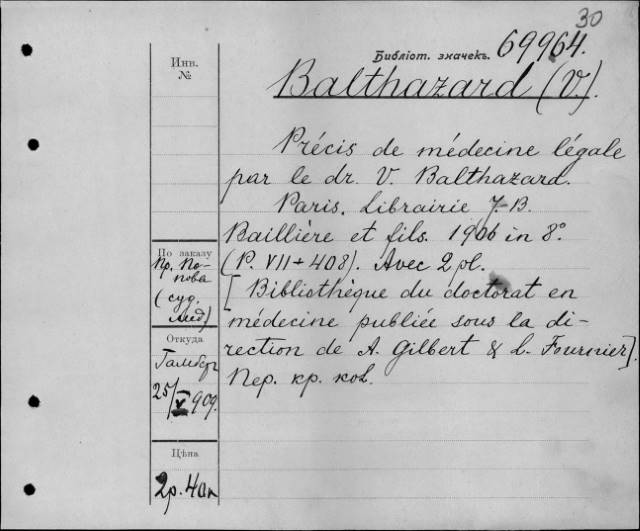 30
Библіот. значекъ. 69964.
Balthazard (V).
Précis de médecine légale
par le dr. V. Balthazard.
Paris. Librairie J.-B.
Baillière et fils. 1906 in 8°
(P. VII + 408). Avec 2 pl.
[Bibliothèque du doctorat en
médecine publiée sous la di-
rection de A. Gilbert & L. Fournier].
Пер. кр. кол.
Инв.
№
По заказу
Пр. По-
пова
(суд.
мед)
Откуда
25/V 909.
Цѣна
2р. 40к